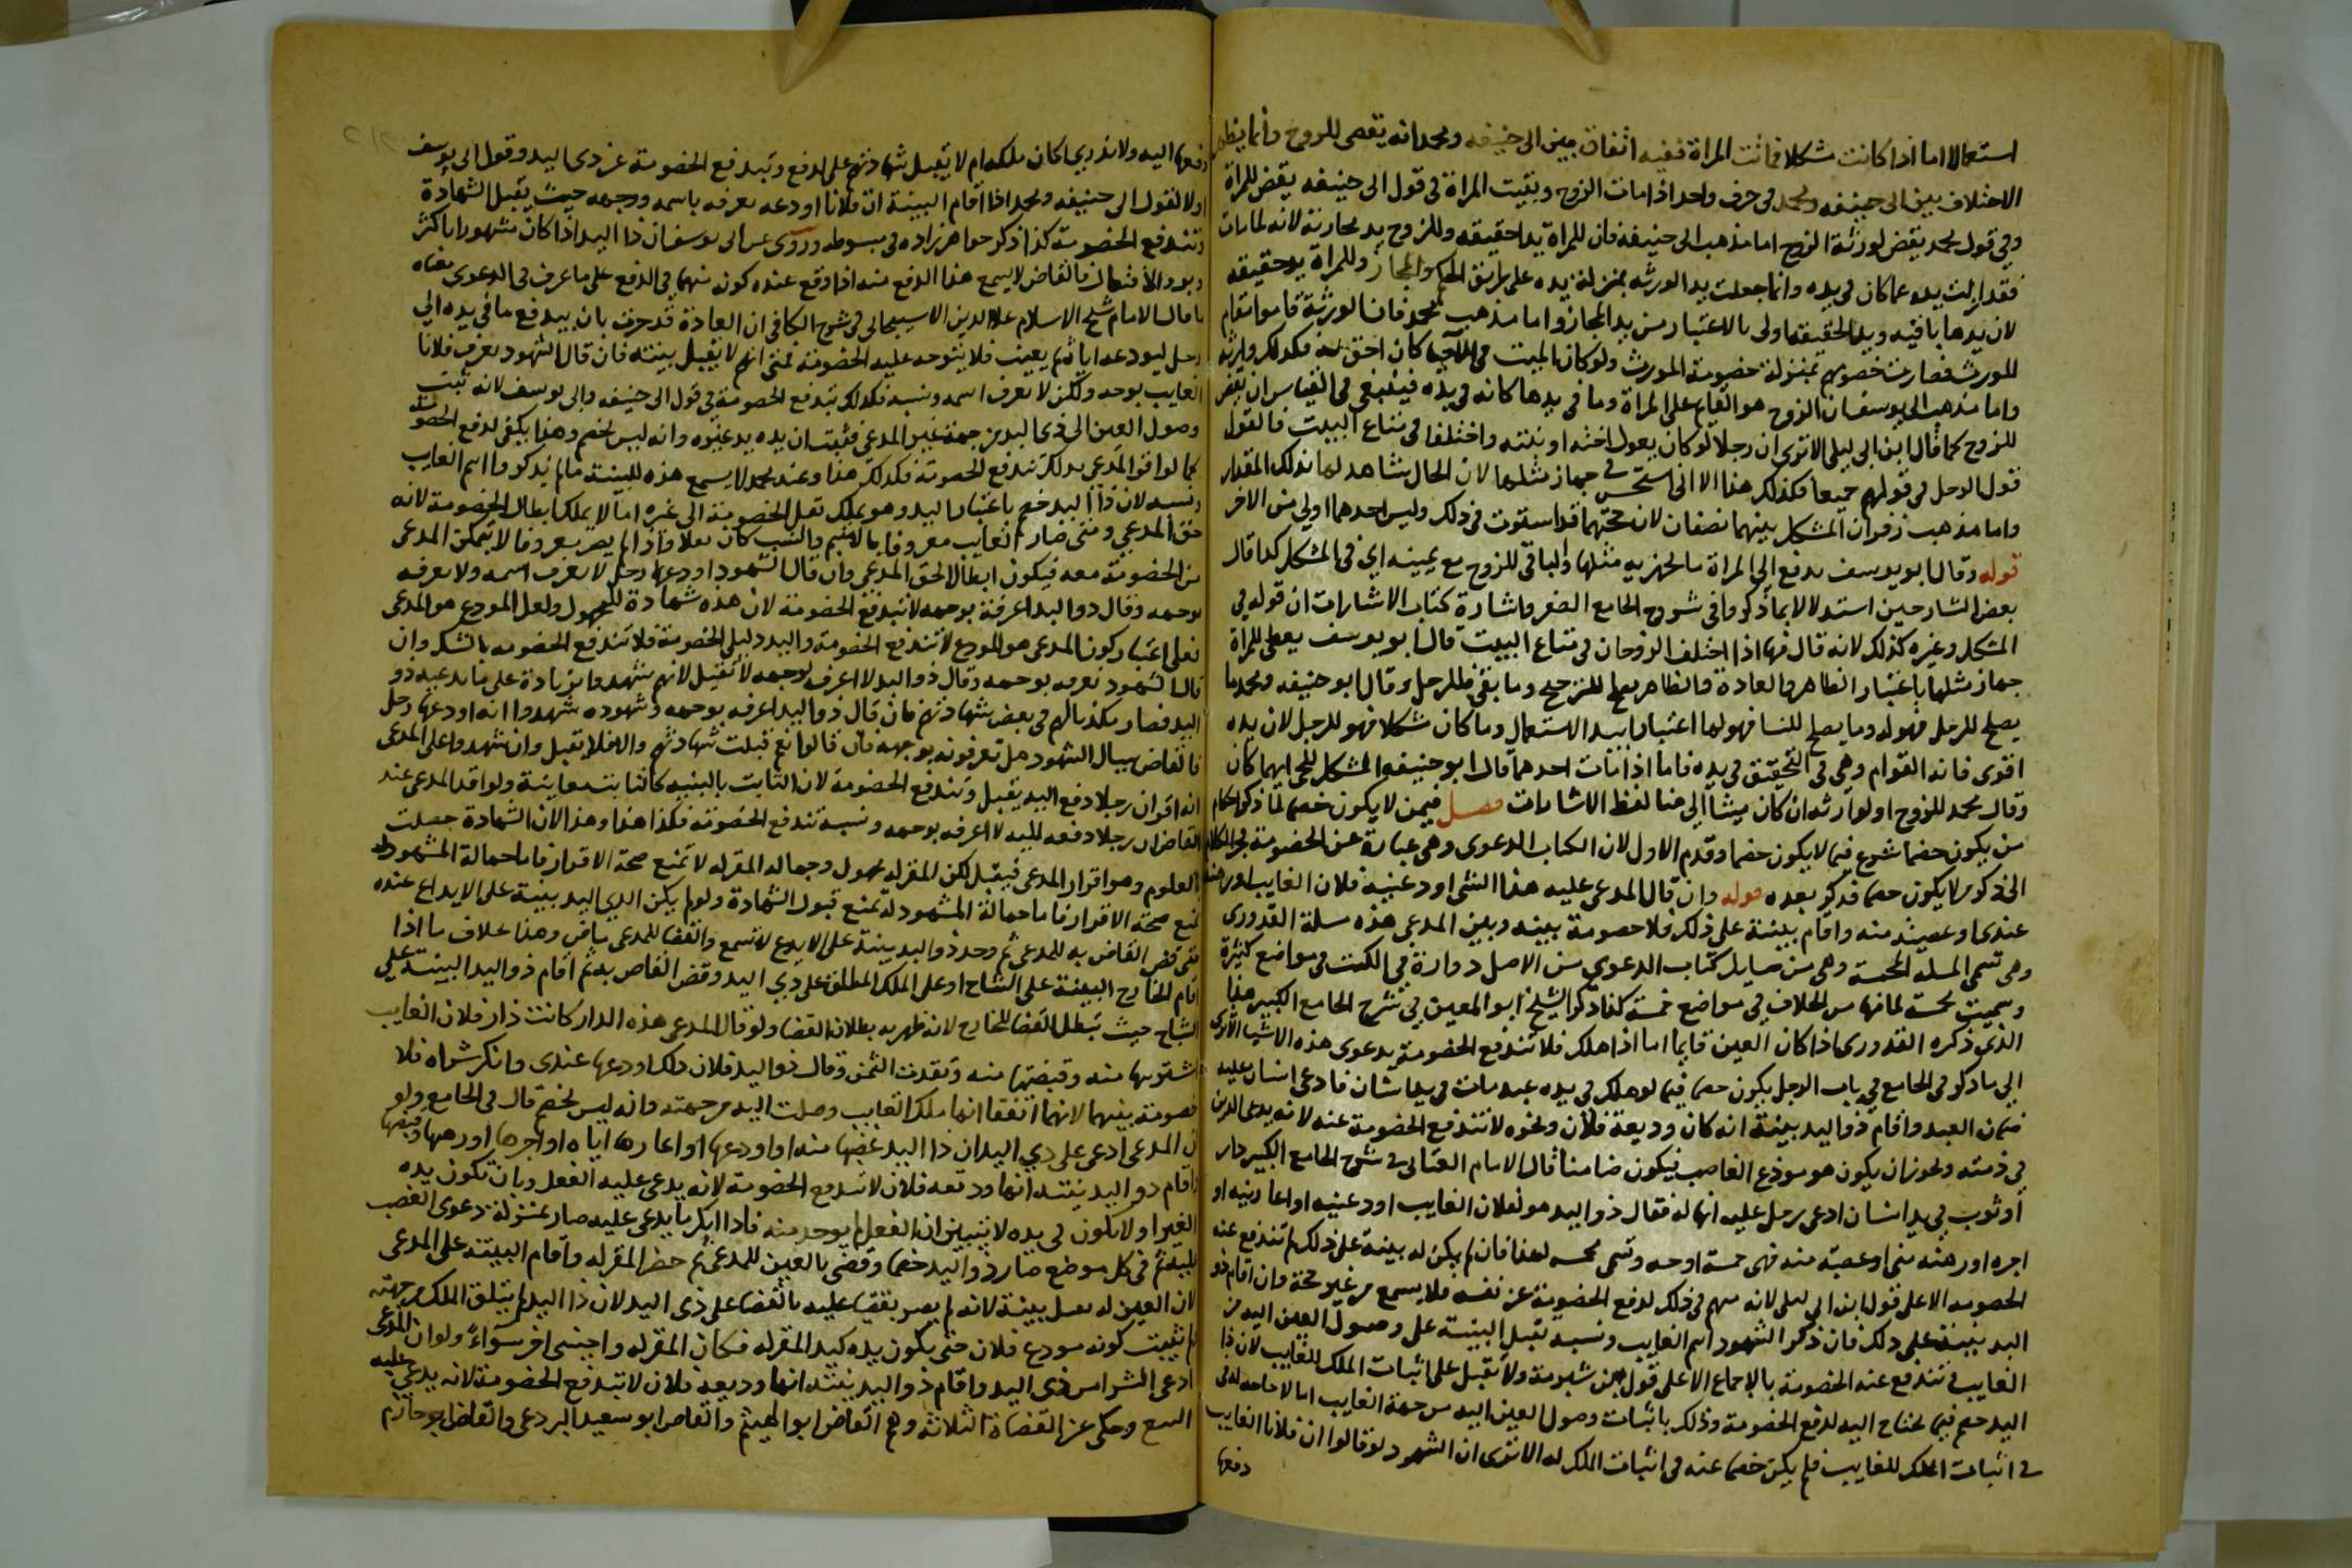 استعمالا اما اذا كانت مشكلا فماتت المراة ففيه اتفاق بين ابى حنيفه ومحمد انه يقضى للزوج وانما يظهر
الاختلاف بين ابى حنيفه ومحمد فى حرف واحد اذا مات الزوج وبقيت المراة فى قول ابى حنيفه يقضى للمراة
وفى قول محمد يقضى لورثة الزوج اما مذهب ابى حنيفة فان للمراة يدا حقيقه وللزوج يد مجازية لانه لما مات
فقد زالت يده عما كان فى يده وانما جعلت يد الورثه بمنزلة يده على طريق الحكم والمجاز وللمراة يد حقيقه
لان يدها باقيه ويد الحقيقه اولى بالاعتبار من يد المجاز واما مذهب محمد فان الورثة قاموا مقام
المورث فصارت خصومتهم بمنزلة خصومة المورث ولو كان الميت فى الاحيا كان احق به فكذلك وارثه
واما مذهب ابى يوسف ان الزوج هو القايم على المراة وما فى يدها كانه فى يده فينبغى فى القياس ان يقضى
للزوج كما قال ابن ابى ليلى الا ترى ان رجلا لو كان يعول اخته او بنته واختلفا فى متاع البيت فالقول
قول الرجل فى قولهم جميعا فكذلك هذا الا انى استحسن فى جهاز مثلها لان الحال شاهد لها بذلك المقدار
واما مذهب زفر ان المشكل بينهما نصفان لان حجتهما قد استوت فى ذلك وليس احدهما اولى من الاخر
قوله وقال ابو يوسف يدفع الى المراة ما يجهز به مثلها والباقى للزوج مع يمينه اى فى المشكل كذا قال
بعض الشارحين استدلالا بما ذكر وافى شروح الجامع الصغير واشارة كتاب الاشارات ان قوله فى
المشكل وغيره كذلك لانه قال فيها اذا اختلف الزوجان فى متاع البيت قال ابو يوسف يعطى للمراة
جهاز مثلها باعتبار الظاهر والعادة والظاهر يصلح للترجيح وما بقى فللرجل وقال ابو حنيفه ومحمد ما
يصلح للرجل فهو له وما يصلح للنسا فهو لها اعتبارا بيد الاستعمال وما كان مشكلا فهو للرجل لان يده
اقوى فانه القوام وهى فى التحقيق فى يده فاما اذا مات احدهما قال ابو حنيفه المشكل للحى ايهما كان
وقال محمد للزوج او لوارثه ان كان ميتا الى هنا لفظ الاشارات فصل فيمن لا يكون خصما لما ذكر احكام
من يكون خصما شرع فيما لا يكون خصما وقدم الاول لان الكتاب الدعوى وهى عبارة عن الخصومة
قوله وان قال المدعى عليه هذا الشى اودعنيه فلان الغايب او رهنه
عندى او غصبته منه واقام بينة على ذلك فلا خصومة بينه وبين المدعى هذه مسلة القدورى
وهى تسمى المسلة المخمسة وهى من مسايل كتاب الدعوى من الاصل دوارة فى الكتب فى مواضع كثيرة
وسميت مخمسة لما فيها من الخلاف فى مواضع خمسة كذا ذكر الشيخ ابو المعين فى شرح الجامع الكبير هذا
الذى ذكره القدورى اذا كان العين قايما اما اذا هلك فلا تندفع الخصومة بدعوى هذه الاشيا الا ترى
الى ما ذكر فى الجامع فى باب الرجل يكون خصما فيما لو هلك فى يده عبد مات فى يد انسان فادعى انسان عليه
ضمان العبد واقام ذو اليد بينة انه كان وديعة فلان ونحوه لا تندفع الخصومة عنه لانه يدعى الدين
فى ذمته ويجوز ان يكون هو مودع الغاصب فيكون ضامنا قال الامام العتابى فى شرح الجامع الكبير دار
او ثوب فى يد انسان ادعى رجل عليه انها له فقال ذو اليد هو لفلان الغايب اودعنيه او اعارنيه او
اجره او رهنه منى او غصبته منه فهى خمسة اوجه وتسمى مخمسه لهذا فان لم يكن له بينة على ذلك لم تندفع عنه
الخصومه الا على قول ابن ابى ليلى لانه متهم فى ذلك لدفع الخصومة عن نفسه فلا يسمع من غير حجة وان اقام ذو
اليد بينة على ذلك فان ذكر الشهود اسم الغايب ونسبه تقبل البينة على وصول العين اليه من
الغايب فتندفع عنه الخصومة بالاجماع الا على قول ابن شبرمة ولا تقبل على اثبات الملك للغايب لان ذا
اليد خصم فيما يحتاج اليه لدفع الخصومة وذلك باثبات وصول العين اليه من جهة الغايب اما لا حاجه له فى
فى اثبات الملك للغايب فلم يكن خصما عنه فى اثبات الملك له الا ترى ان الشهود لو قالوا ان فلانا الغايب
دفعها
دفعها اليه ولا ندرى اكان ملكه ام لا يقبل شهادتهم على الدفع وتندفع الخصومة عن ذى اليد وقول ابى يوسف
اولا كقول ابى حنيفه ومحمد اذا اقام البينة ان فلانا اودعه يعرفه باسمه ووجهه حيث يقبل الشهادة
وتندفع الخصومة كذا ذكر خواهر زاده فى مبسوطه وروى عن ابى يوسف ان ذا اليد اذا كان مشهورا باكثر
فالقاضى لا يسمع هذا الدفع منه اذا وقع عنده كونه متهما فى الدفع على ما عرف فى الدعوى
ما قال الامام شيخ الاسلام علا الدين الاسبيجابى فى شرح الكافى ان العادة قد جرت بان يدفع ما فى يده الى
رجل ليودعه اياه ثم يغيب فلا يتوجه عليه الخصومة فمتى اتهم لا يقبل بينته فان قال الشهود نعرف فلانا
الغايب بوجه ولكن لا نعرف اسمه ونسبه فكذلك تندفع الخصومة فى قول ابى حنيفه وابى يوسف لانه ثبت
وصول العين الى ذى اليد من جهة غير المدعى فثبت ان يده يد غيره وانه ليس بخصم وهذا يكفى لدفع الخصومة
كما لو اقر المدعى بذلك تندفع الخصومة فكذلك هذا وعند محمد لا يسمع هذه البينة ما لم يذكروا اسم الغايب
ونسبه لان ذا اليد خصم باعتبار اليد وهو يملك نقل الخصومة الى غيره اما لا يملك ابطال الخصومة لانه
حق المدعى ومتى صار الغايب معروفا بالاسم والنسب كان نقلا واذا لم يصر معروفا لا يتمكن المدعى
من الخصومة معه فيكون ابطالا لحق المدعى وان قال الشهود اودعها رجل لا نعرف اسمه ولا نعرفه
بوجهه وقال ذو اليد اعرفه بوجهه لا تندفع الخصومة لان هذه شهادة للمجهول ولعل المودع هو المدعى
فعلى اعتبار كون المدعى هو المودع لا تندفع الخصومة واليد دليل الخصومة فلا تندفع الخصومه بالشك وان
قال الشهود نعرفه بوجهه وقال ذو اليد لا اعرف بوجهه لا تقبل لانهم شهدوا بزيادة على ما يدعيه ذو
اليد فصار مكذبا لهم فى بعض شهادتهم فان قال ذو اليد اعرفه بوجهه وشهوده شهدوا انه اودعها رجل
فالقاضى يسال الشهود هل تعرفونه بوجهه فان قالوا نعم قبلت شهادتهم والا فلا يقبل وان شهدوا على المدعى
انه اقر ان رجلا دفع اليه يقبل وتندفع الخصومة لان الثابت بالبينه كالثابت معاينة ولو اقر المدعى عند
القاضى ان رجلا دفعه اليه لا اعرفه بوجهه ونسبه تندفع الخصومة فكذا هذا وهذا لان الشهادة حصلت
بالمعلوم وهو اقرار المدعى فيقبل لكن المقر له مجهول وجهالة المقر له لا تمنع صحة الاقرار فاما جهالة المشهود له
تمنع قبول الشهادة ولو لم يكن لذى اليد بينة على الايداع عنده
حتى قضى القاضى به للمدعى ثم وجد ذو اليد بينة على الايداع لا تسمع والقضا للمدعى ماض وهذا بخلاف ما اذا
اقام الخارج البينة على النتاج او على الملك المطلق على ذى اليد وقضى القاضى به ثم اقام ذو اليد البينة على
النتاج حيث تبطل القضا للخارج لانه ظهر به بطلان القضا ولو قال المدعى هذه الدار كانت دار فلان الغايب
اشتريتها منه وقبضتها منه ونقدت الثمن وقال ذو اليد فلان ذلك اودعها عندى وانكر شراه فلا
خصومة بينهما لانهما اتفقا انها ملك الغايب وصلت اليد من جهته وانه ليس بخصم قال فى الجامع ولو
ان المدعى ادعى على ذى اليد ان ذا اليد غصبها منه او اودعها او اعارها اياه او اجرها او رهنها وقبضها
واقام ذو اليد بينته انها وديعه فلان لا تندفع الخصومة لانه يدعى عليه الفعل وبان تكون يده
لغيره او لا تكون فى يده لا يتبين ان الفعل لم يوجد منه فاذا انكر ما يدعى عليه صار بمنزلة دعوى الغصب
فى كل موضع صار ذو اليد خصما وقضى بالعين للمدعى ثم حضر المقر له واقام البينة على المدعى
لان العين له تقبل بينة لانه لم يصر مقضيا عليه بالقضا على ذى اليد لان ذا اليد لم يتلق الملك من جهته
لم يثبت كونه مودع فلان حتى يكون يده كيد المقر له فكان المقر له واجنبى اخر سواء ولو ان المدعى
ادعى الشرا من ذى اليد واقام ذو اليد بينته انها وديعه فلان لا تندفع الخصومة لانه يدعى عليه
البيع وحكى عن القضاة الثلاثة وهم القاضى ابو الهيثم والقاضى ابو سعيد البردعى والقاضى ابو حازم